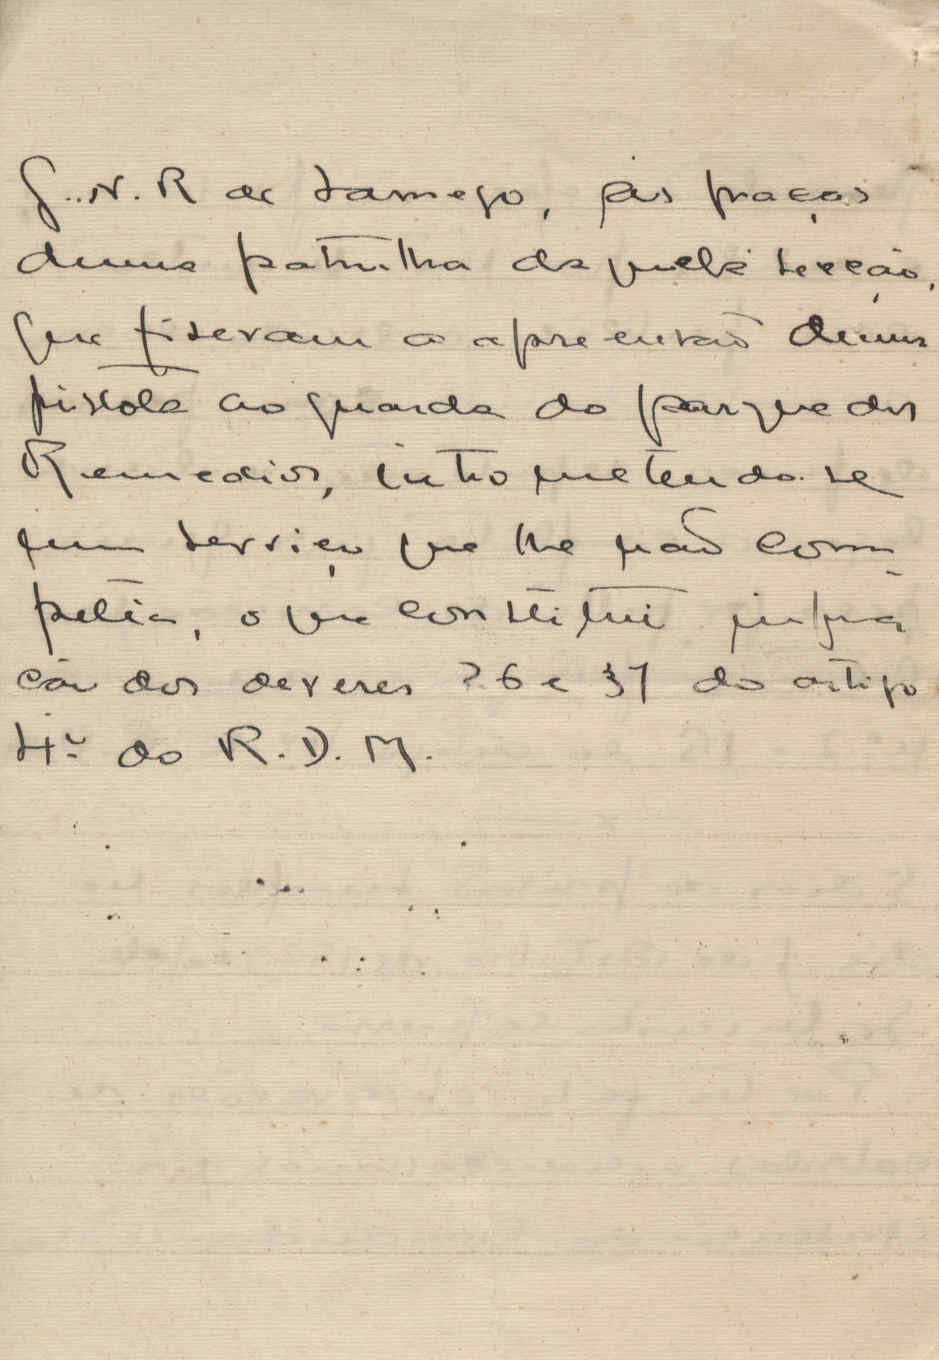 G. N. R de Lamego, às praças
duma patrulha daquela secção,
que fizeram a apreensão duma
pistola ao guarda do parque dos
Remedios, intrometendo-se
num serviço que lhe não com-
petia, o que constitui infra
ção dos deveres 26 e 37 do artigo
4º do R. D. M.